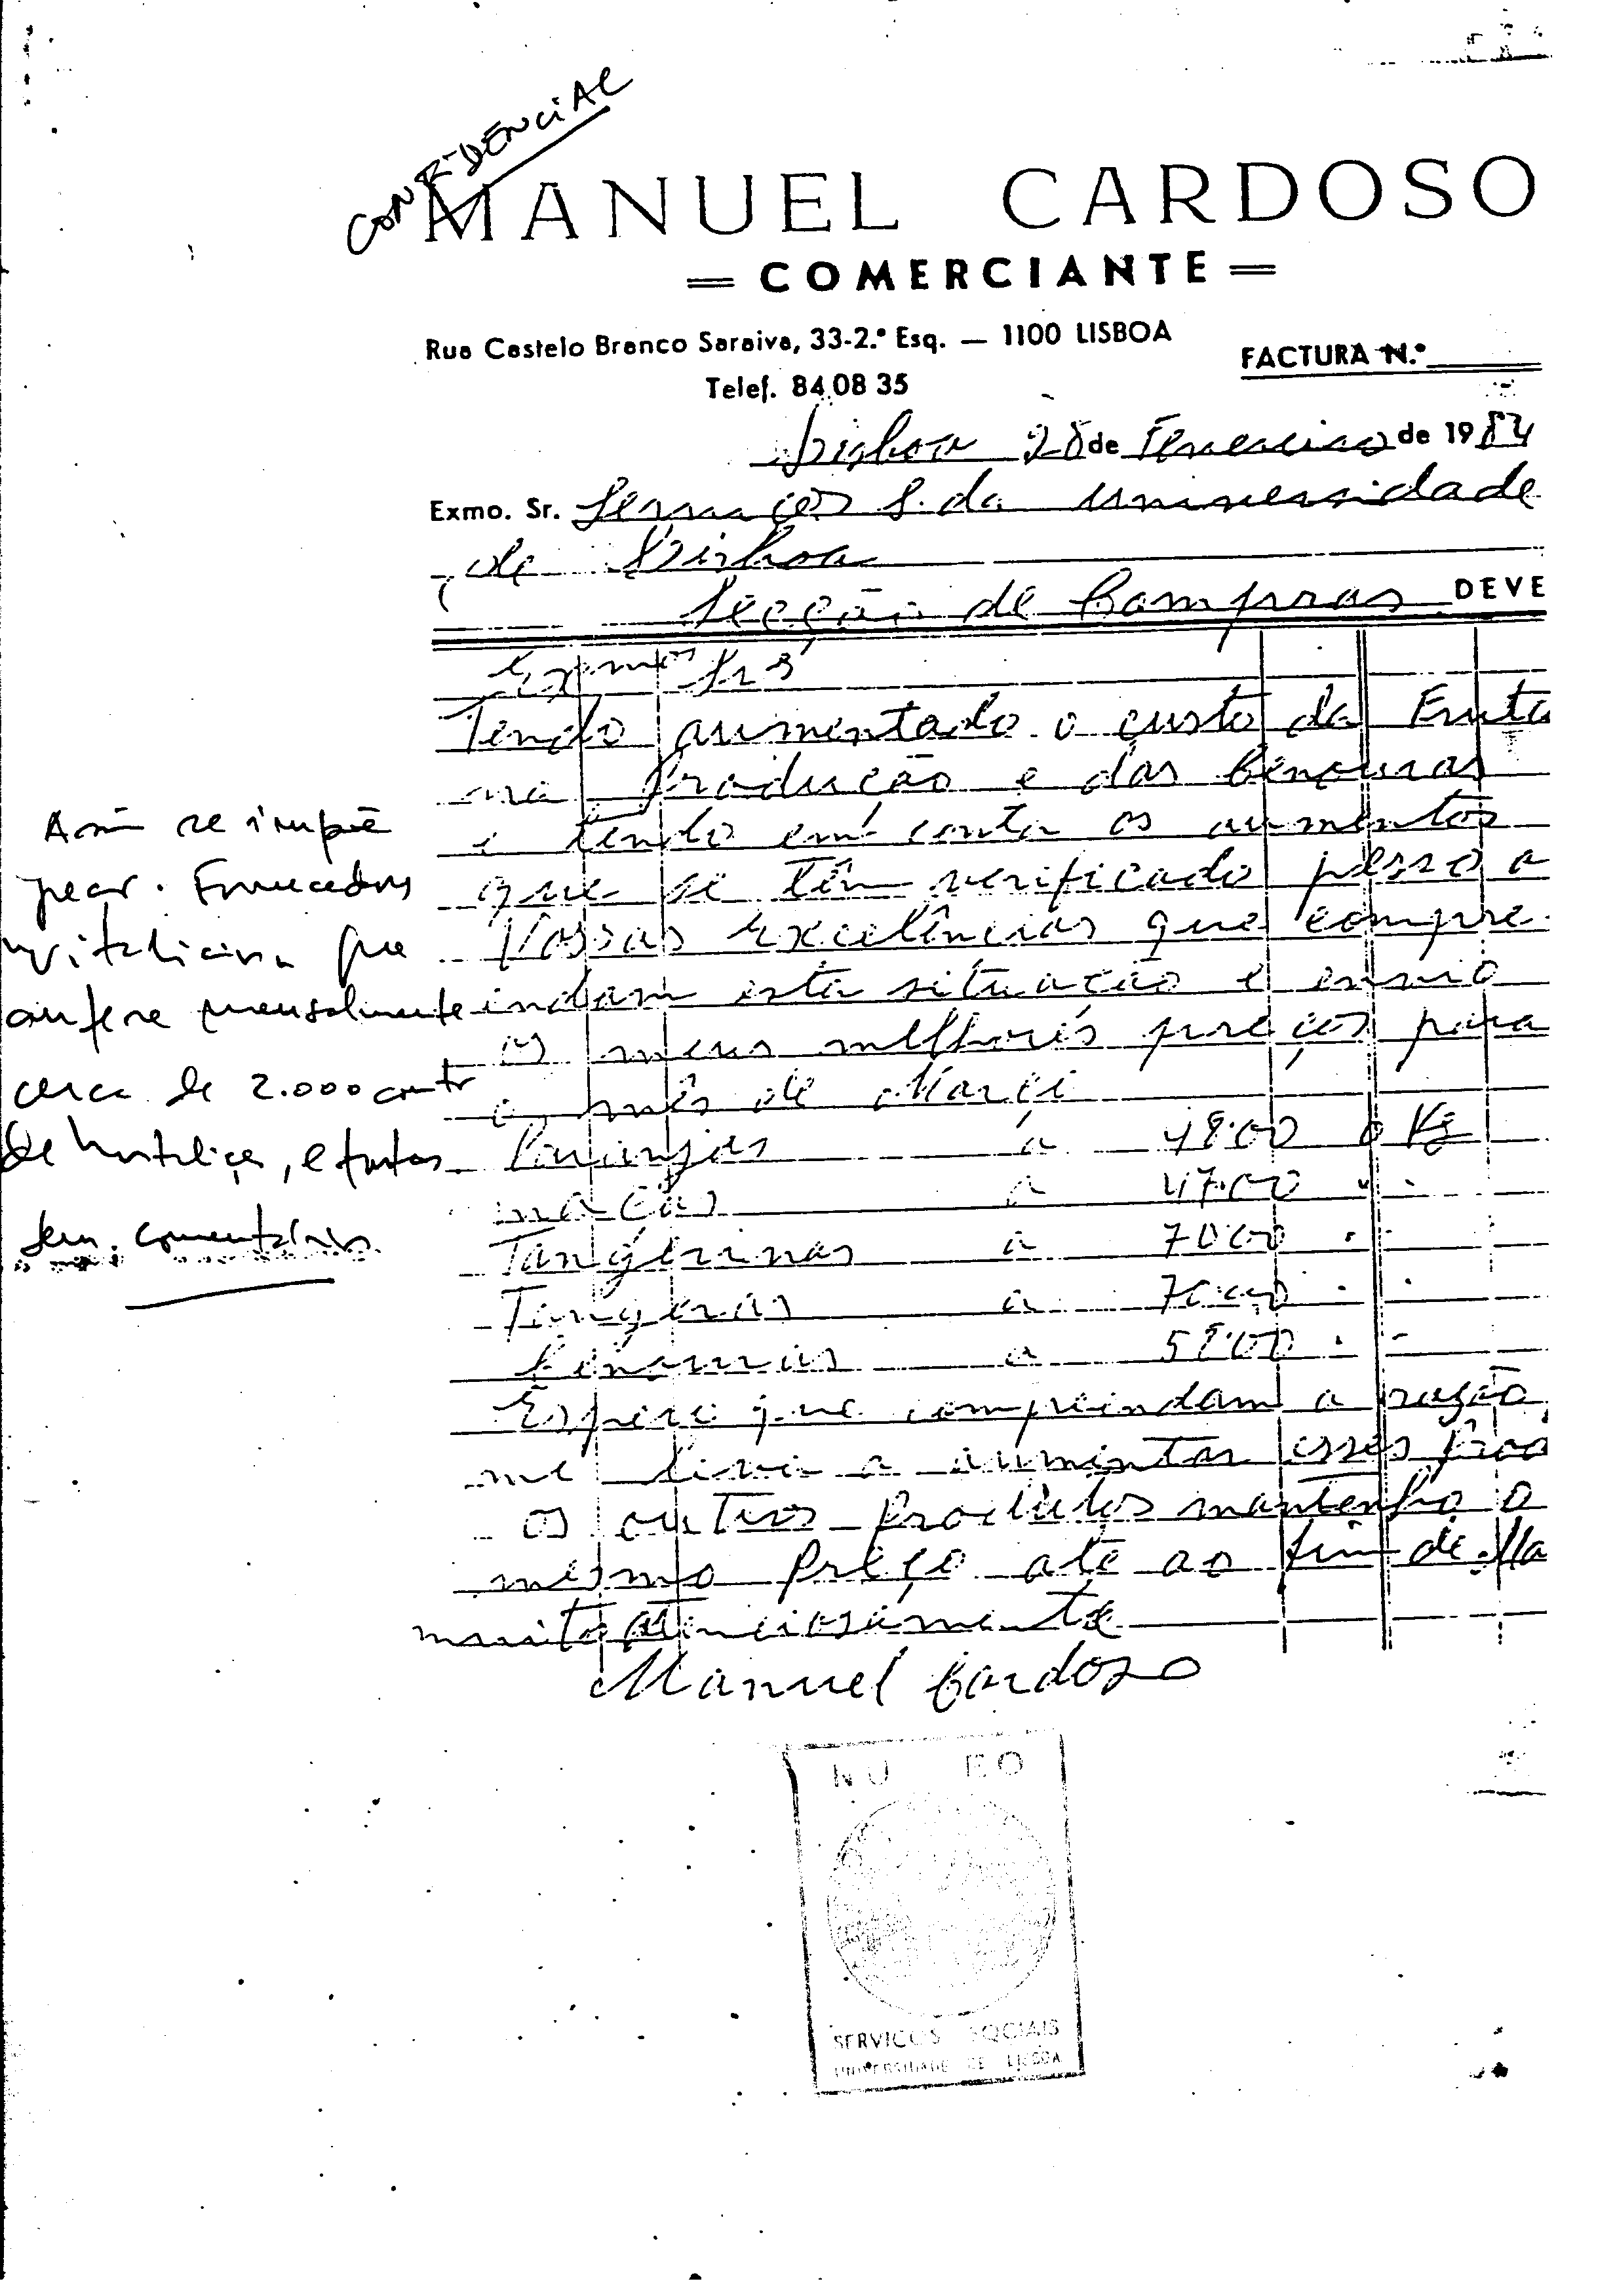 CONFIDENCIAL
MANUEL CARDOSO
= COMERCIANTE =
Rua Castelo Branco Saraiva, 33-2.º Esq. — 1100 LISBOA
FACTURA N.º
Telef. 84 08 35
Lisboa 28 de Fevereiro de 1984
Exmo. Sr. Serviços S. da Universidade
de Lisboa
Secção de Compras DEVE
Exmos Srs
Tendo aumentado o custo da Fruta
na Produção e das Cenouras
e tendo em conta os aumentos
que se têm verificado peço a
Vossas Excelências que compre
indam esta situação e envio
os meus melhores preços para
o mês de Março
Laranjas a 48.00 o Kg
maçãs a 47.00 " "
Tangerinas a 70.00 " "
Tangeras a 70.00 " "
Cenouras a 58.00 " "
Espero que compreindam a razão
me leva a aumentar esses Prod
os outros Produtos mantenho o
mesmo Preço até ao fim de Ma
muito Atenciosamente
Manuel Cardoso
Assim se impõe
Fornecedores
vitalícios que
aufere mensalmente
cerca de 2.000 contos
de hortaliças, e frutas
Sem comentários
NU EO
SERVIÇOS SOCIAIS
UNIVERSIDADE DE LISBOA